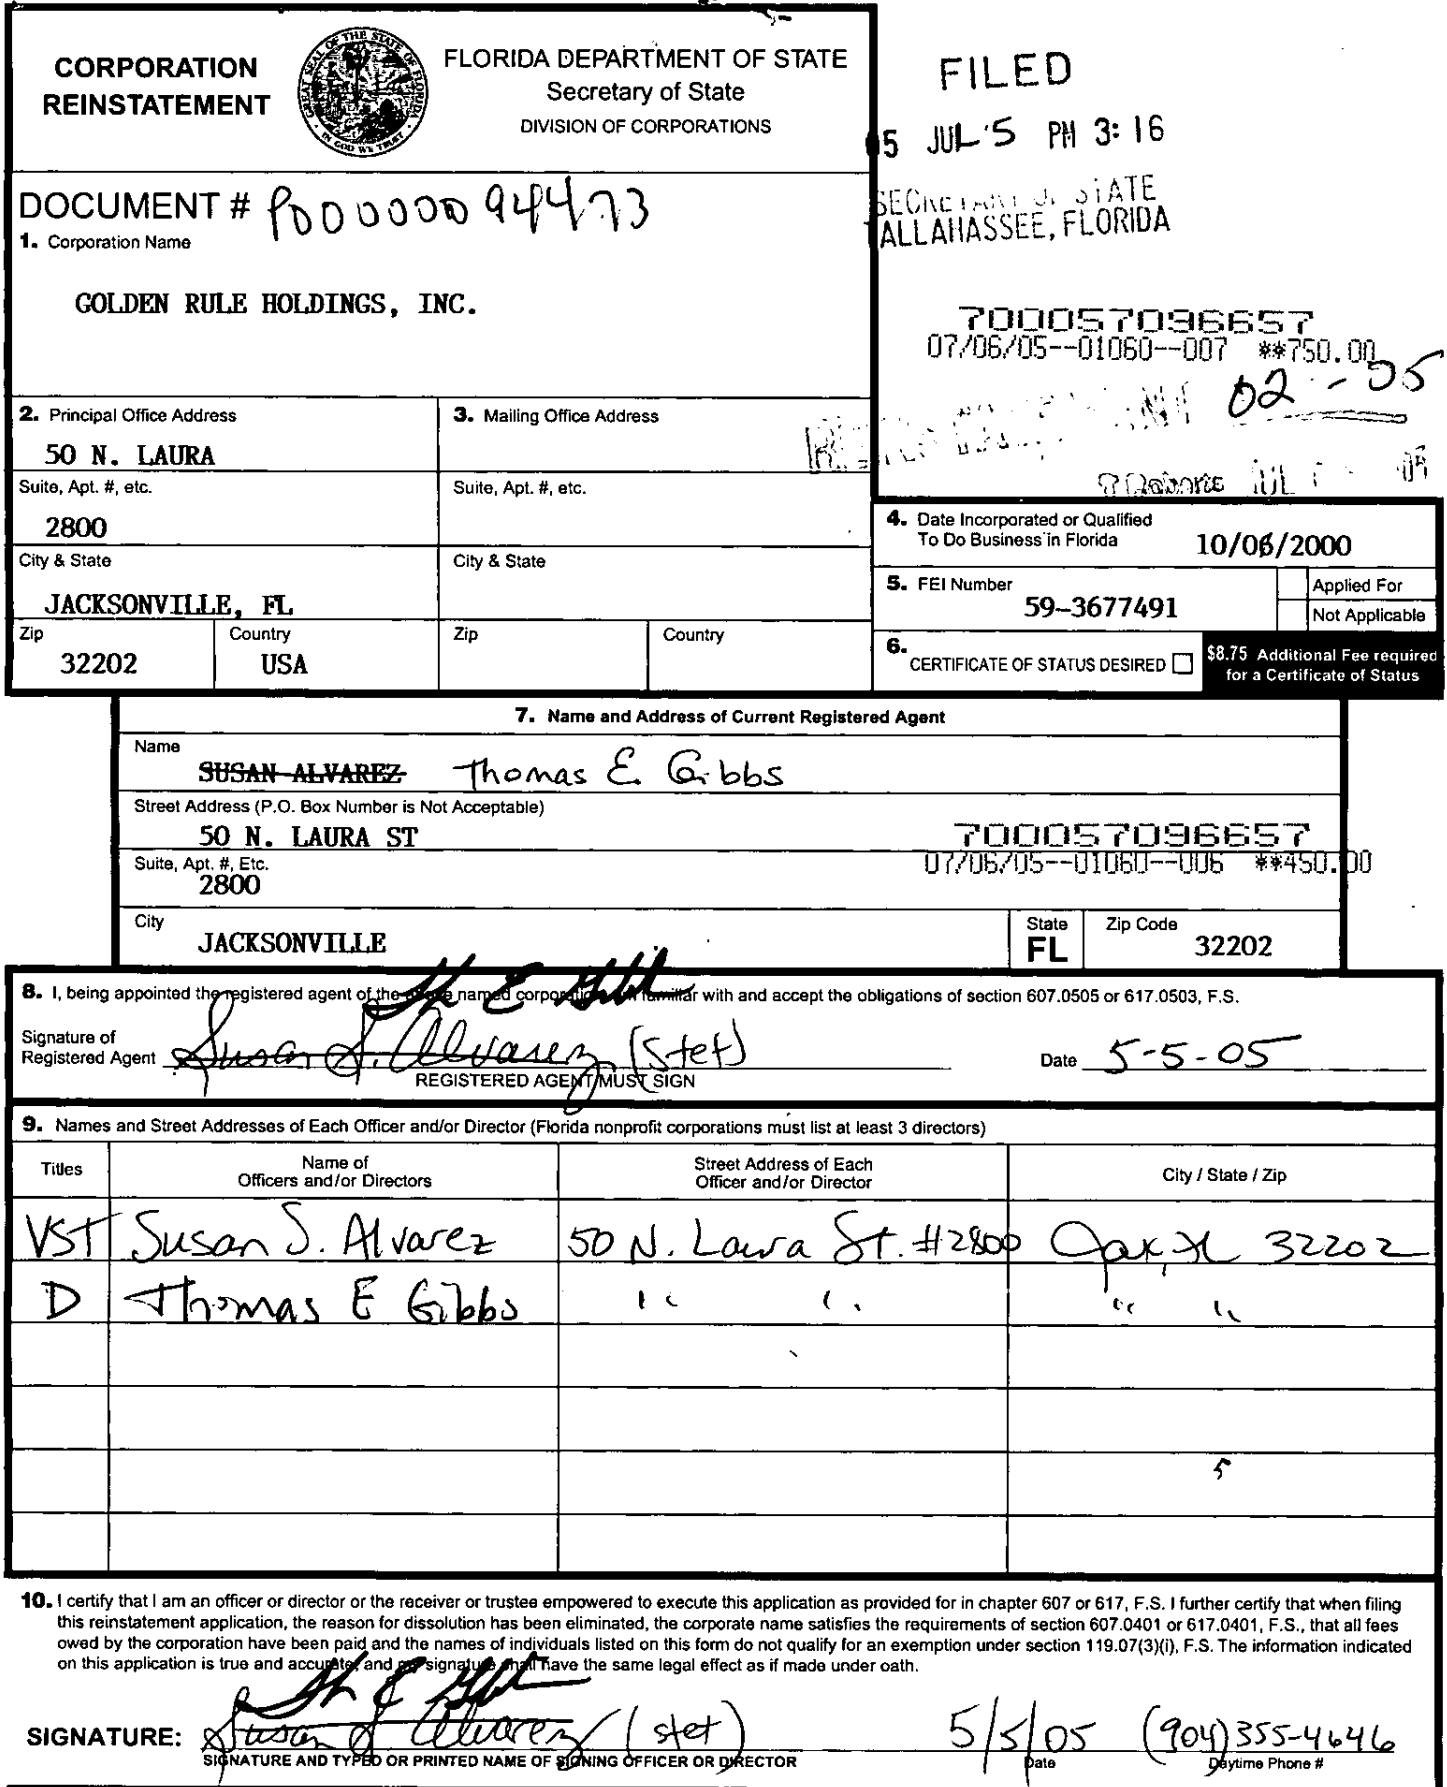 CORPORATION
REINSTATEMENT
GREAT SEAL OF THE STATE OF FLORIDA
IN GOD WE TRUST
FLORIDA DEPARTMENT OF STATE
Secretary of State
DIVISION OF CORPORATIONS
FILED
5 JUL 5 PM 3:16
SECRETARY OF STATE
TALLAHASSEE, FLORIDA
DOCUMENT # P00000094473
1. Corporation Name
GOLDEN RULE HOLDINGS, INC.
700057096657
07/06/05--01060--007 **750.00
02 - 05
2. Principal Office Address
50 N. LAURA
Suite, Apt. #, etc.
2800
City & State
JACKSONVILLE, FL
Zip
32202
Country
USA
3. Mailing Office Address
Suite, Apt. #, etc.
City & State
Zip
Country
JUL
4. Date Incorporated or Qualified
To Do Business in Florida
10/06/2000
5. FEI Number
59-3677491
Applied For
Not Applicable
6.
CERTIFICATE OF STATUS DESIRED
$8.75 Additional Fee required
for a Certificate of Status
7. Name and Address of Current Registered Agent
Name
SUSAN ALVAREZ Thomas E. Gibbs
Street Address (P.O. Box Number is Not Acceptable)
50 N. LAURA ST
700057096657
07/06/05--01060--006 **450.00
Suite, Apt. #, Etc.
2800
City
JACKSONVILLE
State
FL
Zip Code
32202
8. I, being appointed the registered agent of the above named corporation, am familiar with and accept the obligations of section 607.0505 or 617.0503, F.S.
Signature of
Registered Agent Susan S. Alvarez (stet)
REGISTERED AGENT MUST SIGN
Date 5-5-05
9. Names and Street Addresses of Each Officer and/or Director (Florida nonprofit corporations must list at least 3 directors)
Titles
Name of
Officers and/or Directors
Street Address of Each
Officer and/or Director
City / State / Zip
VST Susan S. Alvarez 50 N. Laura St. #2800 Jax, FL 32202
D Thomas E Gibbs " " " "
10. I certify that I am an officer or director or the receiver or trustee empowered to execute this application as provided for in chapter 607 or 617, F.S. I further certify that when filing
this reinstatement application, the reason for dissolution has been eliminated, the corporate name satisfies the requirements of section 607.0401 or 617.0401, F.S., that all fees
owed by the corporation have been paid and the names of individuals listed on this form do not qualify for an exemption under section 119.07(3)(i), F.S. The information indicated
on this application is true and accurate, and my signature shall have the same legal effect as if made under oath.
SIGNATURE: Susan S Alvarez (stet)
SIGNATURE AND TYPED OR PRINTED NAME OF SIGNING OFFICER OR DIRECTOR
5/5/05
Date
(904)355-4646
Daytime Phone #